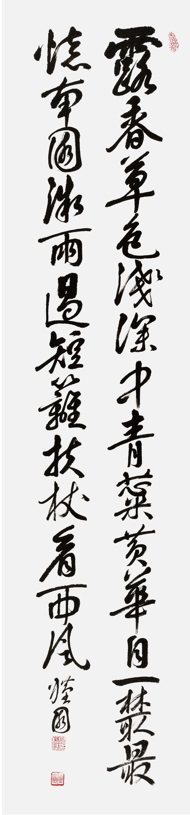 露香草色淺深中青蘂黃華自一叢最
憶南園微雨過短籬扶杖看西風